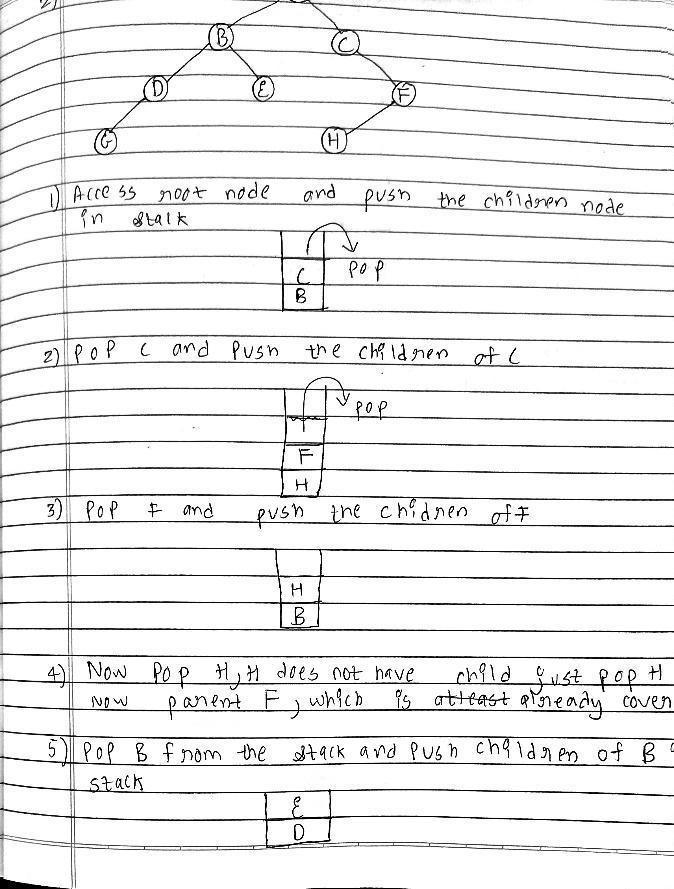 2)
B
C
D
E
F
G
H
1) Access root node and push the children node
in stalk
C
POP
B
2) POP C and Push the children of C
POP
F
H
3) POP F and push the chidren of F
H
B
4) Now Pop H, H does not have child just pop H
Now parent F, which is atleast already cover
5) POP B from the stack and Push children of B
stack
E
D